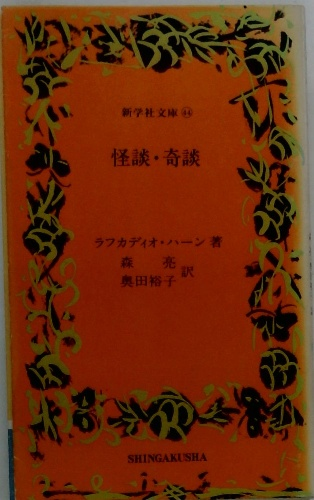 新学社文庫 44
怪談・奇談
ラフカディオ・ハーン 著
森 亮
奥田裕子 訳
SHINGAKUSHA